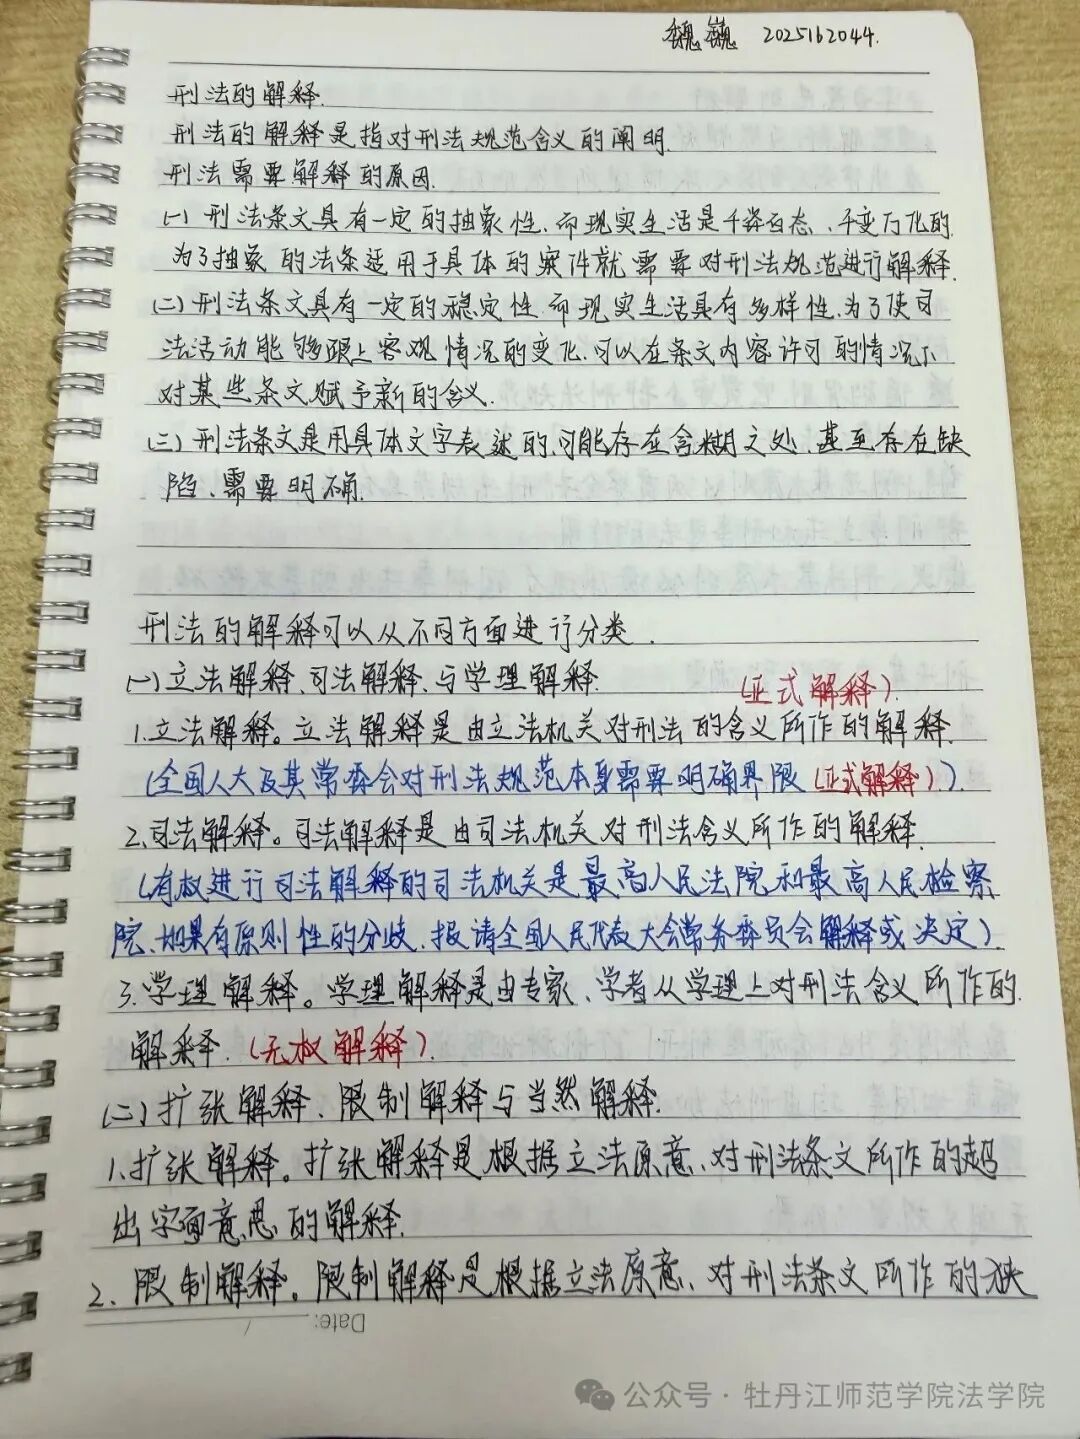 魏巍 2025162044.
刑法的解释.
刑法的解释是指对刑法规范含义的阐明.
刑法需要解释的原因.
(一) 刑法条文具有一定的抽象性.而现实生活是千姿百态、千变万化的.
为了抽象的法条适用于具体的案件就需要对刑法规范进行解释.
(二) 刑法条文具有一定的稳定性.而现实生活具有多样性.为了使司
法活动能够跟上客观情况的变化.可以在条文内容许可的情况下
对某些条文赋予新的含义.
(三) 刑法条文是用具体文字表述的.可能存在含糊之处.甚至存在缺
陷、需要明确.
刑法的解释可以从不同方面进行分类.
(一) 立法解释、司法解释、与学理解释.
(正式解释).
1.立法解释。立法解释是由立法机关对刑法的含义所作的解释.
(全国人大及其常委会对刑法规范本身需要明确界限(正式解释)).
2.司法解释。司法解释是由司法机关对刑法含义所作的解释.
(有权进行司法解释的司法机关是最高人民法院和最高人民检察
院、如果有原则性的分歧.报请全国人民代表大会常务委员会解释或决定).
3.学理解释。学理解释是由专家、学者从学理上对刑法含义所作的.
解释.(无权解释).
(二) 扩张解释、限制解释与当然解释.
1.扩张解释。扩张解释是根据立法原意、对刑法条文所作的超
出字面意思的解释.
2.限制解释。限制解释是根据立法原意、对刑法条文所作的狭
Date:
公众号·牡丹江师范学院法学院